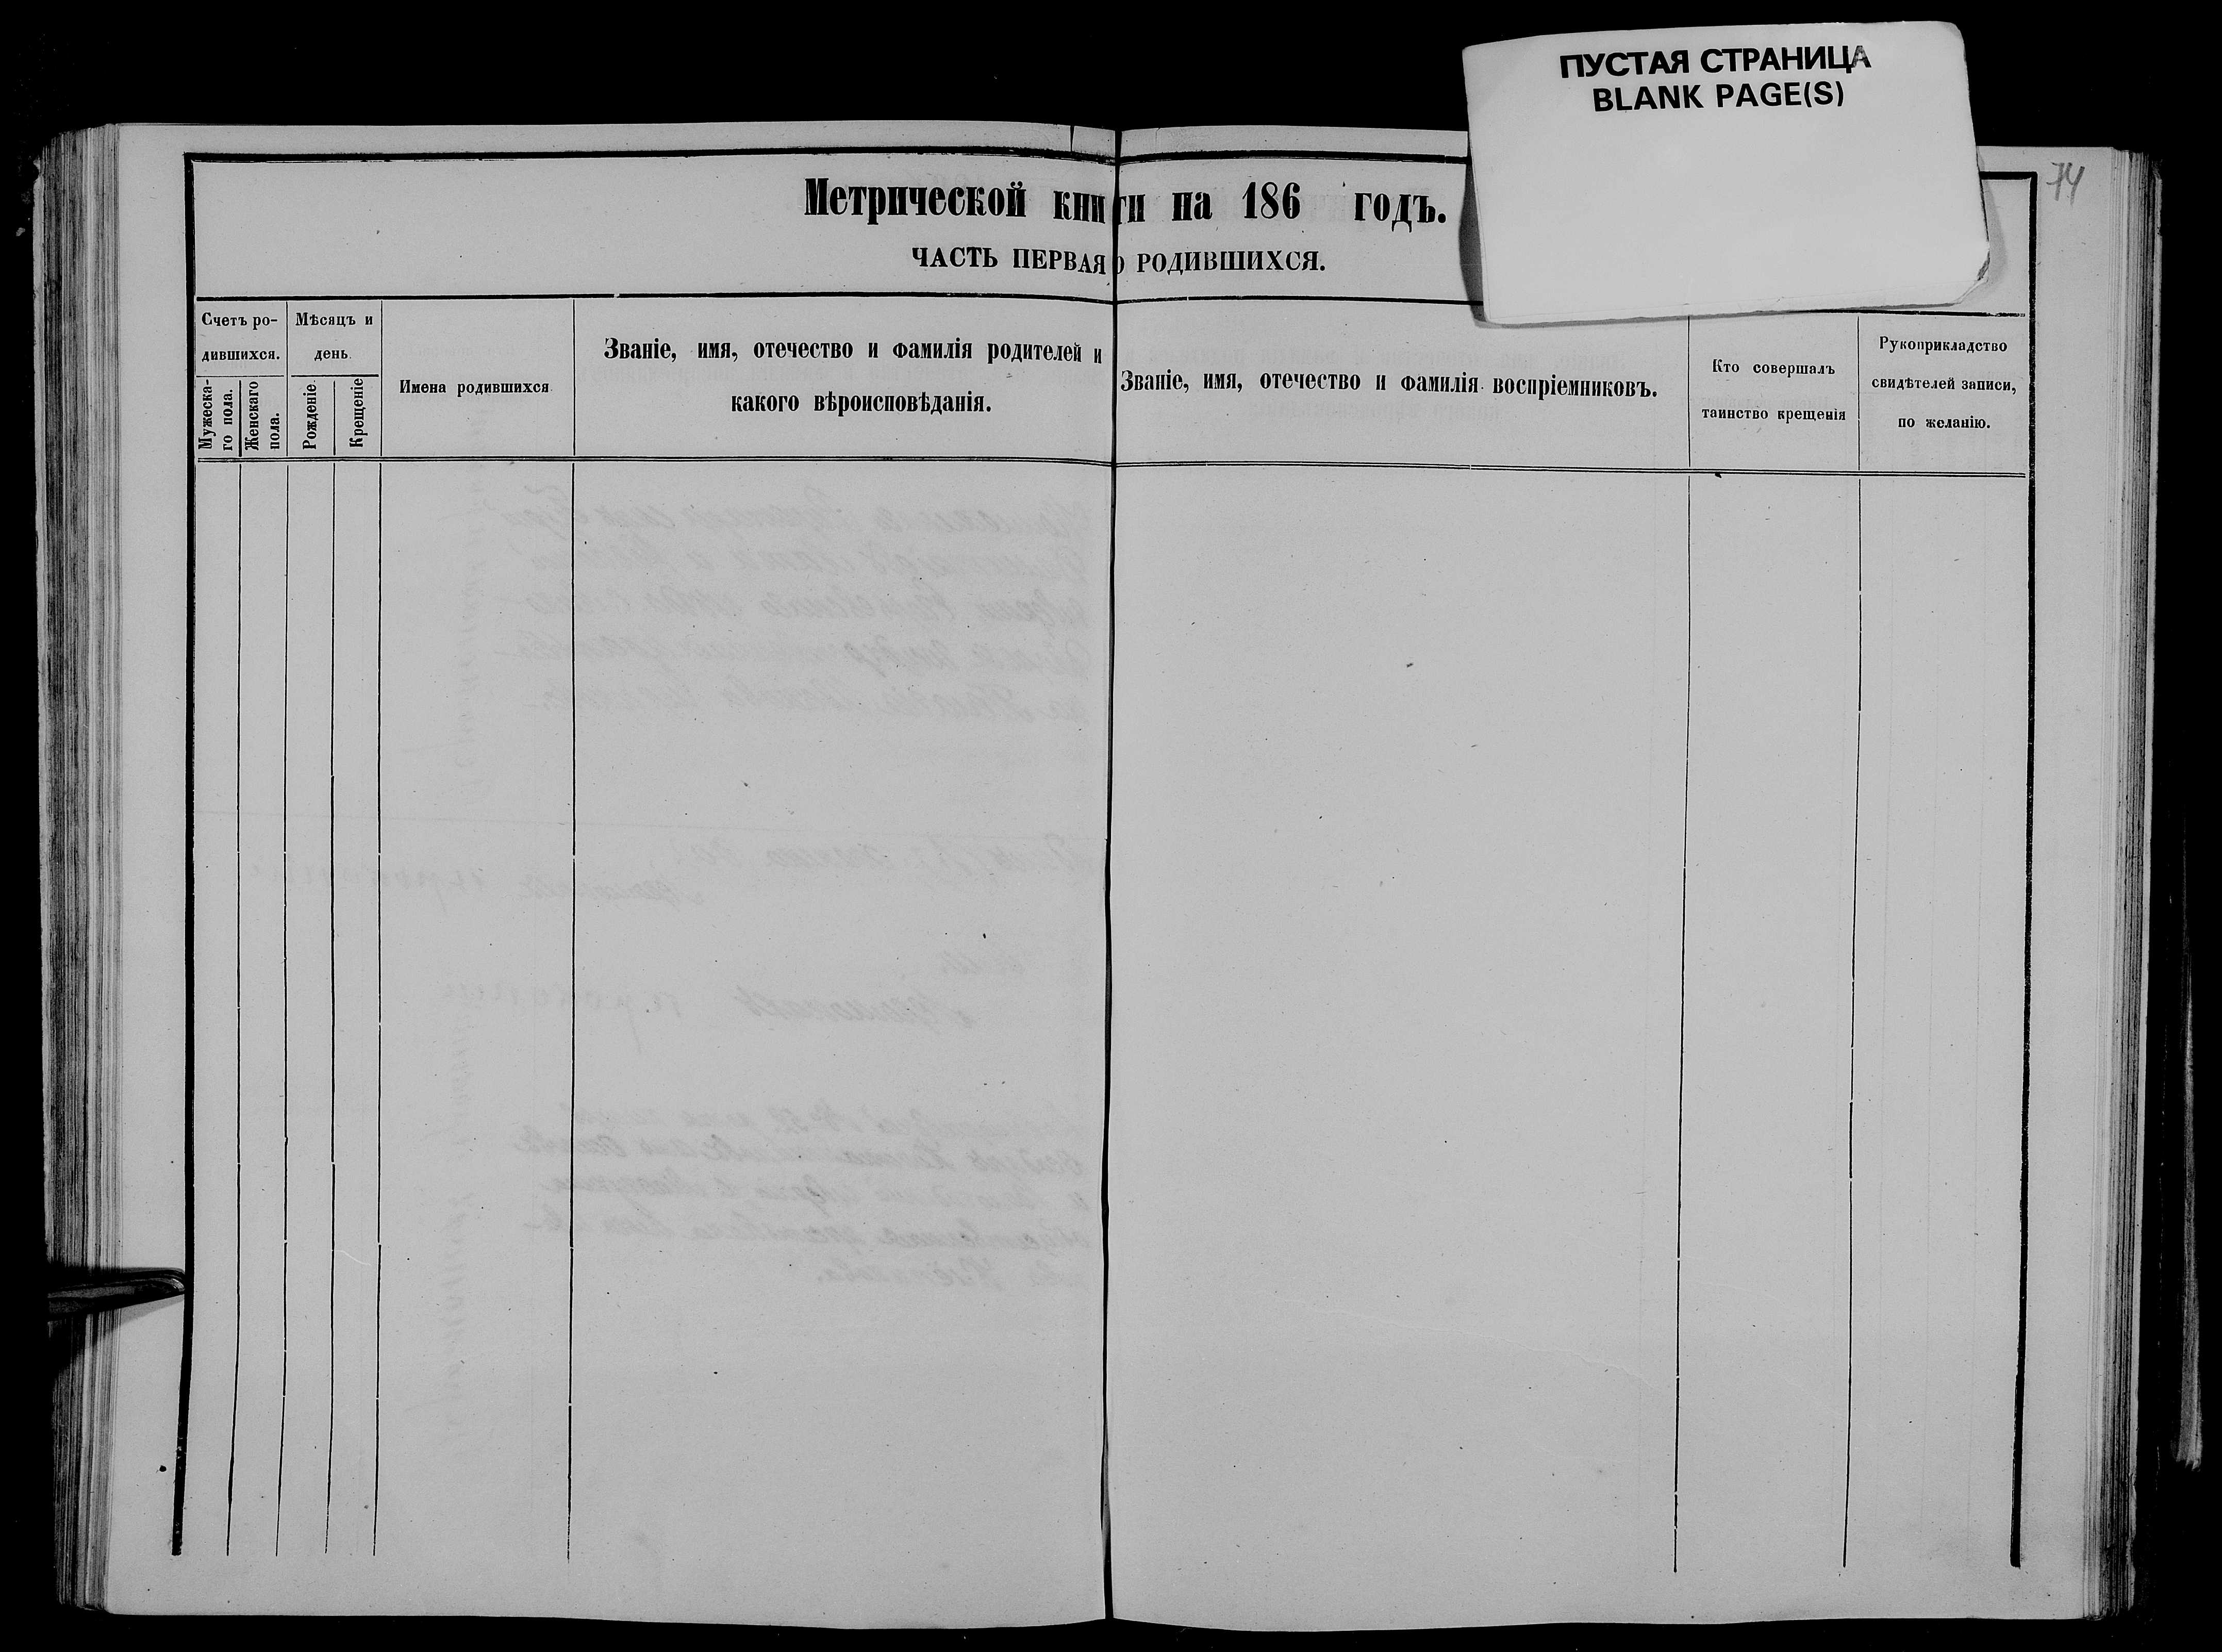 ПУСТАЯ СТРАНИЦА
BLANK PAGE(S)
74
Метрической книги на 186 годъ.
ЧАСТЬ ПЕРВАЯ О РОДИВШИХСЯ.
Счетъ ро-
дившихся.
Мужеска-
го пола.
Женскаго
пола.
Мѣсяцъ и
день.
Рожденіе
Крещеніе
Имена родившихся
Званіе, имя, отечество и фамилія родителей и
какого вѣроисповѣданія.
Званіе, имя, отечество и фамилія воспріемниковъ.
Кто совершалъ
таинство крещенія
Рукоприкладство
свидѣтелей записи,
по желанію.